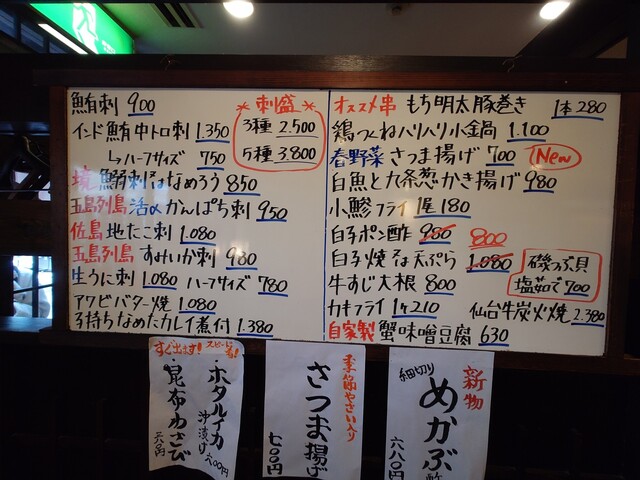 鮪刺 900
インド鮪 中トロ刺 1.350
↳ハーフサイズ 750
境 鯛刺 なめろう 850
五島列島 活〆かんぱち刺 950
佐島 地たこ刺 1.080
五島列島 すみいか刺 980
生うに刺 1.080 ハーフサイズ 780
アワビバター焼 1.080
子持ちなめたカレイ煮付 1.380
刺盛
3種 2.500
5種 3.800
オススメ串 もち明太豚巻き 1本 280
鶏つくねハリハリ小鍋 1.100
春野菜 さつま揚げ 700 New
白魚と九条葱かき揚げ 980
小鯵フライ 1尾 180
白子ポン酢 980 800
白子焼 天ぷら 1.080
磯つぶ貝
塩茹で 700
牛すじ大根 800
カキフライ 1ケ 210
仙台牛炭火焼 2.380
自家製 蟹味噌豆腐 630
すぐ出ます! スピード
ホタルイカ
沖漬け 六〇〇円
昆布わさび
季節やさい入り
さつま揚げ
七〇〇円
新物
細切り
めかぶ酢
六八〇円